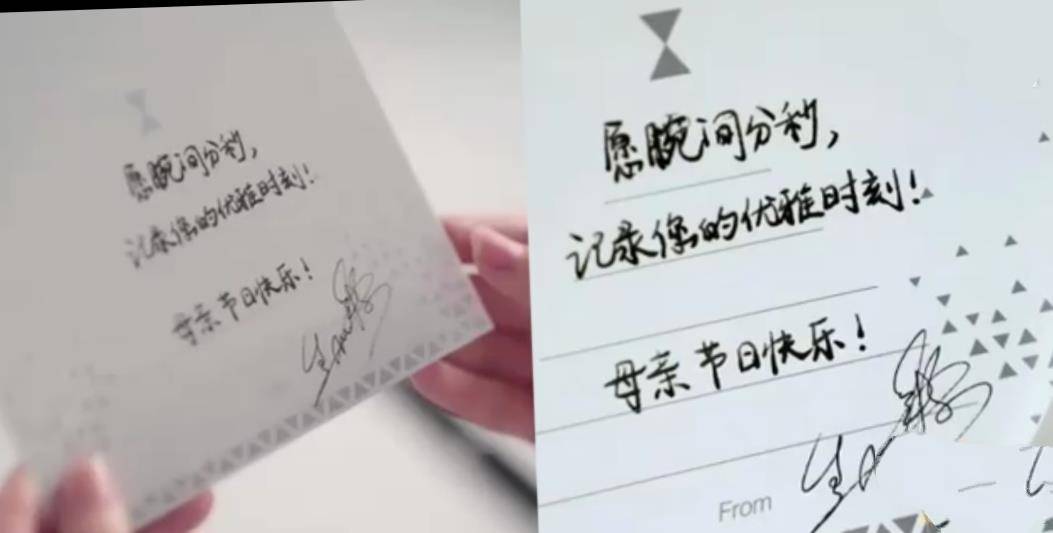 愿腕间分秒，
记录您的优雅时刻！
母亲节日快乐！
愿腕间分秒，
记录您的优雅时刻！
母亲节日快乐！
From